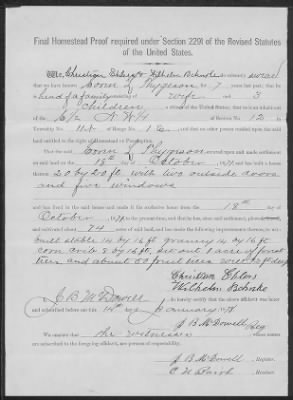 Final Homestead Proof required under Section 2291 of the Revised Statutes
of the United States.
We, Christian Ehlers & Wilhelm Behnke solemnly swear
that we have known Soren L Thygeson for 7 years last past; that he
head of a family consisting of wife and 3
children of the United States; that he is
E/2 N W 4 of Section No. 12 in
Township No. 11 N of Range No. 1 and that no other person resided upon the said
land entitled to the right of Homestead or Pre-emption.
That the said Soren L Thygeson entered upon and made settlement
on said land on the 18th day of October, 1871, and has built a house
thereon 20 by 20 ft with two outside doors
and five windows
and has lived in the said house and made it his exclusive home from the 18th day of
October 1871 to the present time, and that he has, since said settlement, plowed,
and cultivated about 74 acres of said land, and has made the following improvements thereon, to wit:
built stable 14 by 16 ft granary 14 by 16 ft
corn crib 8 by 16 ft, set out 1 acre of forest
trees and about 50 fruit trees well dug
Christian Ehlers
Wilhelm Behnke
I, J B McDowell do hereby certify that the above affidavit was taken
and subscribed before me this 14th day of January 1878
J. B. McDowell Reg
We certify that the witnesses
are subscribing to the foregoing affidavit, are persons of respectability.
J. B. McDowell, Register.
, Receiver.